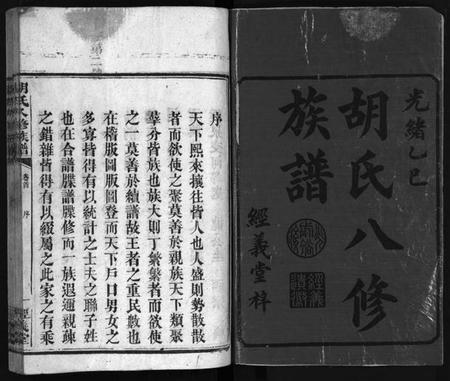 光緒乙巳
胡氏八修
族譜
經義堂梓
序
天下熙來攘往皆人也人盛則勢散散
者而欲使之聚莫善於親族天下類聚
羣分皆族也族大則丁繁繁者而欲使
之一莫善於續譜故王者之重民數也
在稽版圖版圖登而天下戶口男女之
多寡皆得有以統計之士夫之聯子姓
也在合譜牒譜牒修而一族遐邇親疎
之錯雜皆得有以綴屬之此家之有乘
胡氏八修族譜
卷首
序
一
經義堂